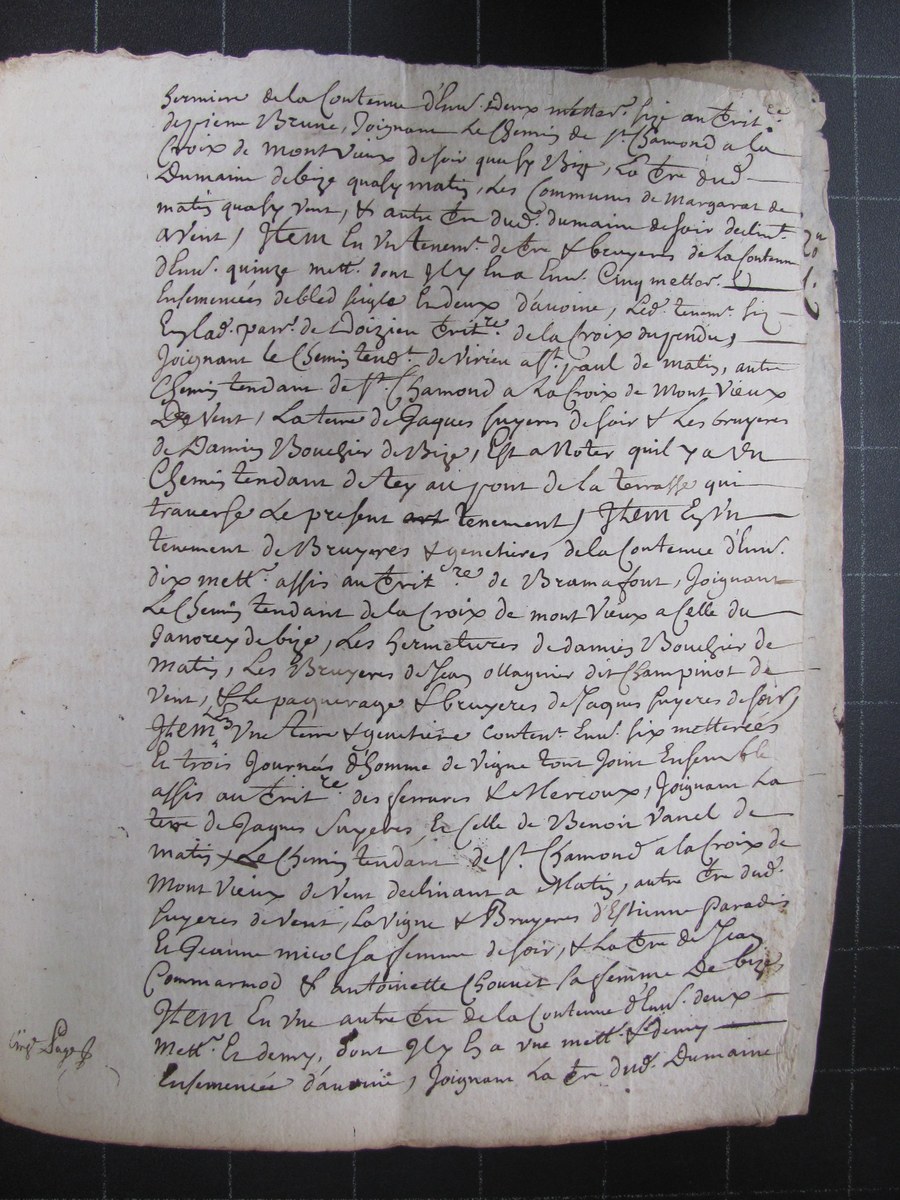 hermiere de la Contenue d'Env. deux mettar. size au Territ.re
de pierre Brune, Joignant Le Chemin de st. Chamond a la
Croix de mont Vieux de soir quasy Bize, La Tre dud.
Dumaine de bize quasy matin, Les Communes de Margarat de
matin quasy vent, & autre Tre dud. dumaine de soir declint.
a Vent / Item En Vn tenem. de Tre & bruyeres de la Contenue
d'Env. quinze mett. dont Il y En a Env. Cinq mettar.
Ensemencées de bled seigle Et deux d'avoine, Led. tenem. size
En lad. parr. de Doizieu Territ.re de la Croix du pendu,
Joignant le Chemin tend.t de Virieu a st. paul de matin, autre
Chemin tendant de st. Chamond a La Croix de Mont Vieux
De Vent, La terre de Jaques suyeres de soir & Les bruyeres
de Damien Bouchier de Bize, Est a Noter quil y a Vn
Chemin tendant de Tey au pont de la terrasse qui
traverse Le present art tenement / Item Est Vn
tenement de Bruyeres & genetieres de la Contenue d'Env.
dix mett. assis au Territ.re de Bramafont, Joignant
Le Chemin tendant de la Croix de mont Vieux a Celle du
Janorey de bize, Les hermetures de damien Bouchier de
Matin, Les Bruyeres de Jean ollagnier dit Champinot de
Vent, & Le paquerage & bruyeres de Jaques suyeres de soir,
Item Vne terre & genetiere Conten. Env. six metterées
Et trois Journées d'homme de Vigne tout Joint Ensemble
assis au Territ.re des ferrares & Le Mercoux, Joignant La
terre de Jaques Suyeres Et Celle de Benoit Vanel de
matin / Le Chemin tendant de st. Chamond a la Croix de
Mont Vieux de Vent declinant a Matin, autre Tre dud.
suyeres de Vent, La Vigne & Bruyeres d'Estienne Paradis
Et Jeanne micol sa femme de soir, & La Tre de Jean
Commarmod & antoinette Chouvet sa femme De bize
Item En Vne autre Tre de la Contenue d'Env. deux
Mett. Et demy, dont Il y En a vne mett. & demy
Ensemencée d'avoine, Joignant La Tre dud. Dumaine